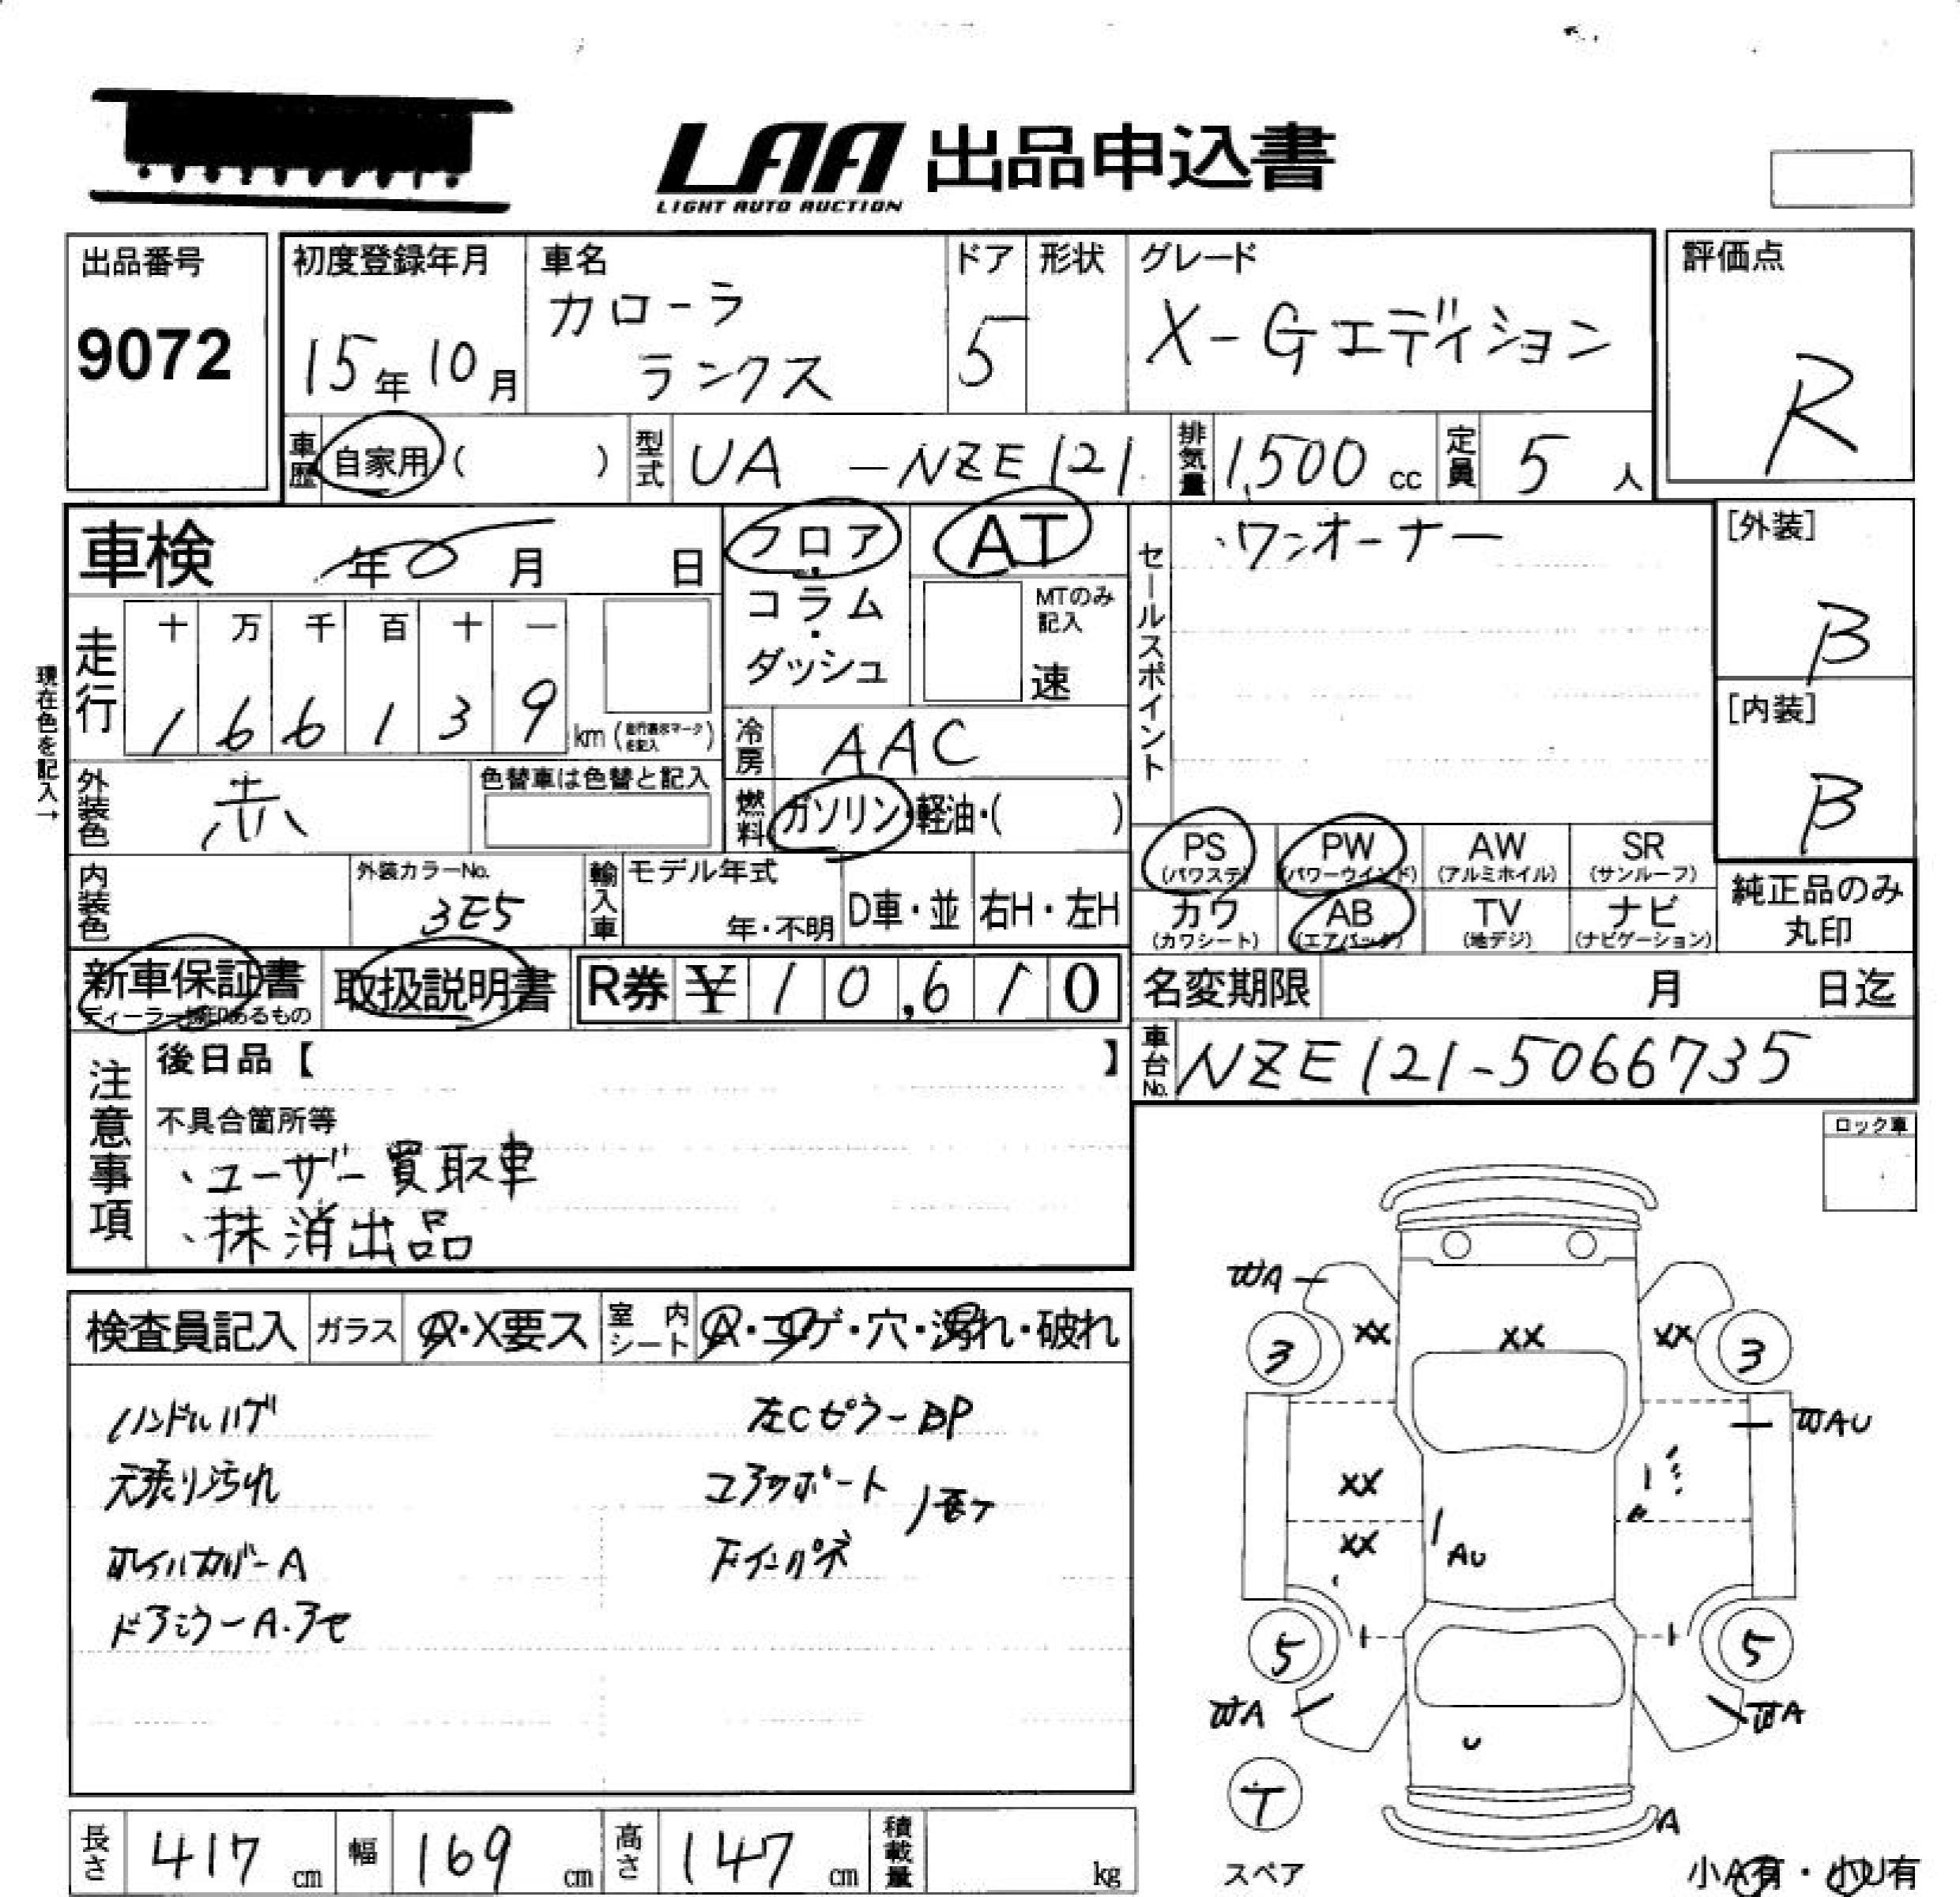 LAA 出品申込書
LIGHT AUTO AUCTION
出品番号
9072
初度登録年月
15年10月
車名
カローラ
ランクス
ドア
5
形状
グレード
X-Gエディション
評価点
R
車歴 自家用 ( )
型式 UA -NZE121
排気量 1,500 cc
定員 5 人
車検 年 月 日
フロア・コラム・ダッシュ
AT
MTのみ記入
速
セールスポイント
・ワンオーナー
[外装]
B
[内装]
B
現在色を記入→
走行
十 万 千 百 十 一
1 6 6 1 3 9 km (走行表示マークを記入)
冷房 AAC
外装色 赤
色替車は色替と記入
燃料 ガソリン・軽油・( )
PS (パワステ)
PW (パワーウインド)
AW (アルミホイル)
SR (サンルーフ)
カワ (カワシート)
AB (エアバッグ)
TV (地デジ)
ナビ (ナビゲーション)
純正品のみ
丸印
内装色
外装カラーNo.
3E5
輸入車
モデル年式
年・不明
D車・並
右H・左H
新車保証書
取扱説明書
R券 ¥ 10,610
名変期限 月 日迄
車台No. NZE121-5066735
注意事項
後日品【 】
不具合箇所等
、ユーザー買取車
、抹消出品
ロック車
検査員記入
ガラス
A・X要ス
室内シート
A・コゲ・穴・汚れ・破れ
ハンドルハゲ
天張り汚れ
ホイルカバーA
ドアミラーA.アセ
左Cピラー BP
コアサポート
下インパネ
WA
XX XX XX
3 3
WAU
XX
XX
AU
5 5
WA WA
U
T
スペア
A
小A有・小U有
長さ 417 cm
幅 169 cm
高さ 147 cm
積載量 kg